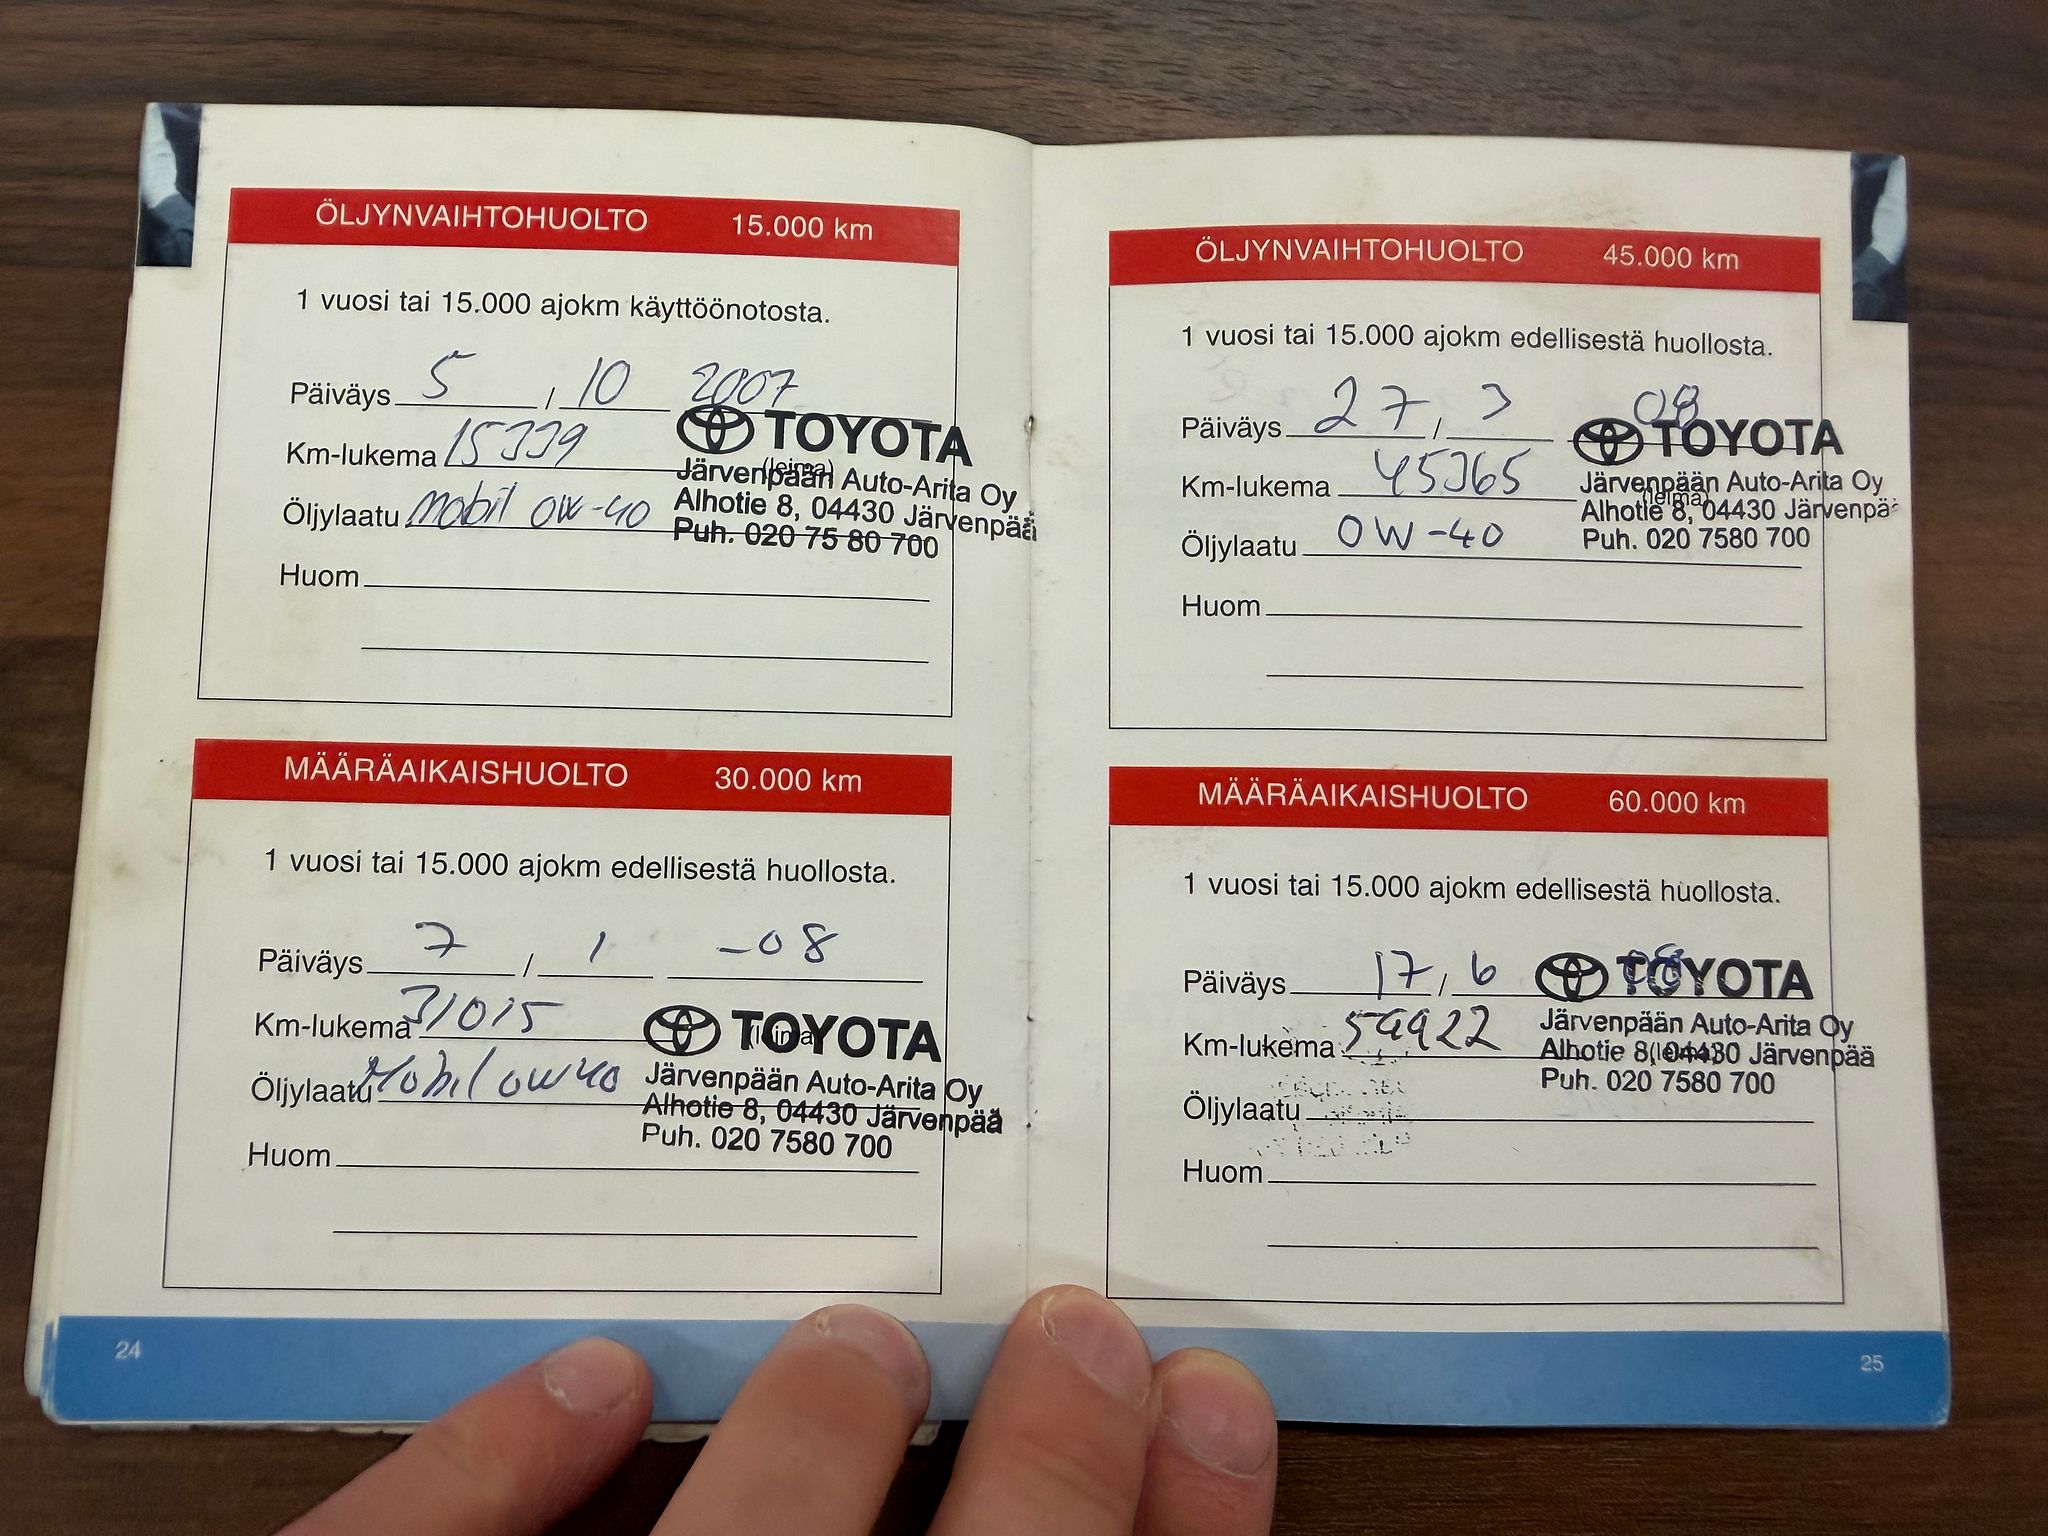 ÖLJYNVAIHTOHUOLTO 15.000 km
1 vuosi tai 15.000 ajokm käyttöönotosta.
Päiväys 5 / 10 2007
Km-lukema 15339
Öljylaatu Mobil 0W-40
Huom
(leima)
TOYOTA
Järvenpään Auto-Arita Oy
Alhotie 8, 04430 Järvenpää
Puh. 020 75 80 700
MÄÄRÄAIKAISHUOLTO 30.000 km
1 vuosi tai 15.000 ajokm edellisestä huollosta.
Päiväys 7 / 1 -08
Km-lukema 31015
Öljylaatu Mobil 0W40
Huom
(leima)
TOYOTA
Järvenpään Auto-Arita Oy
Alhotie 8, 04430 Järvenpää
Puh. 020 7580 700
24
ÖLJYNVAIHTOHUOLTO 45.000 km
1 vuosi tai 15.000 ajokm edellisestä huollosta.
Päiväys 27 / 3 08
Km-lukema 45365
Öljylaatu 0W-40
Huom
(leima)
TOYOTA
Järvenpään Auto-Arita Oy
Alhotie 8, 04430 Järvenpä
Puh. 020 7580 700
MÄÄRÄAIKAISHUOLTO 60.000 km
1 vuosi tai 15.000 ajokm edellisestä huollosta.
Päiväys 17 / 6 08
Km-lukema 59922
Öljylaatu
Huom
(leima)
TOYOTA
Järvenpään Auto-Arita Oy
Alhotie 8, 04430 Järvenpää
Puh. 020 7580 700
25